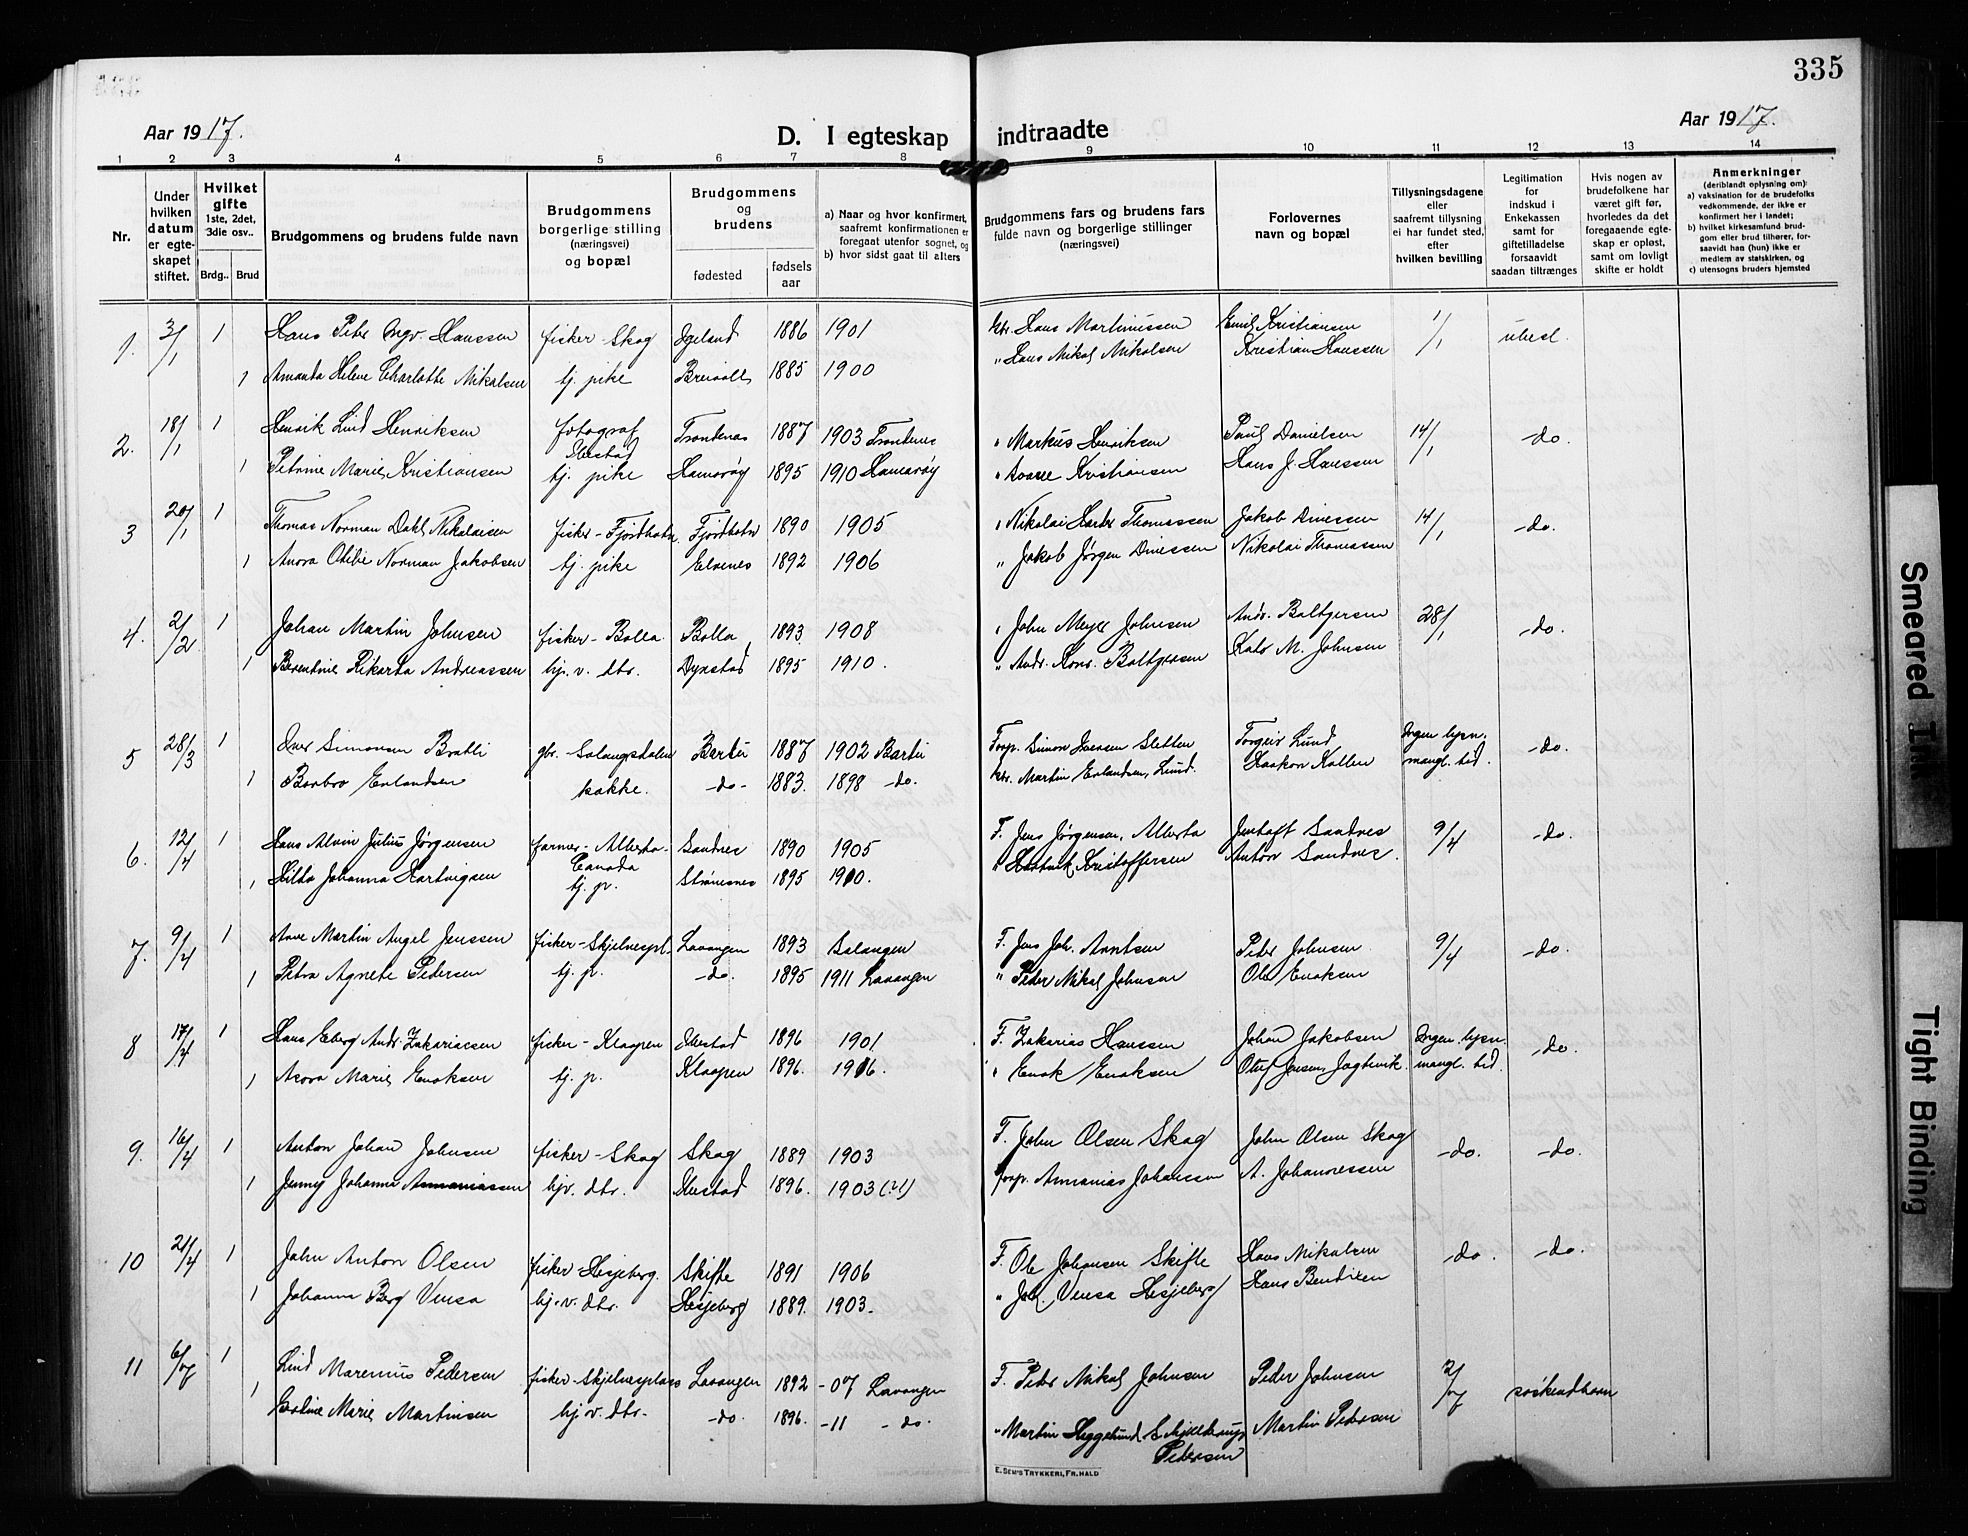 335
Aar 1917.
D. I egteskap indtraadte
Aar 1917.
1 2 3 4 5 6 7 8 9 10 11 12 13 14
Nr.
Under hvilken datum er egteskapet stiftet.
Hvilket gifte 1ste, 2det, 3die osv..
Brdg.. Brud
Brudgommens og brudens fulde navn
Brudgommens borgerlige stilling (næringsvei) og bopæl
Brudgommens og brudens
fødested
fødsels aar
a) Naar og hvor konfirmert, saafremt konfirmationen er foregaat utenfor sognet, og
b) hvor sidst gaat til alters
Brudgommens fars og brudens fars fulde navn og borgerlige stillinger (næringsvei)
Forlovernes navn og bopæl
Tillysningsdagene eller saafremt tillysning ei har fundet sted, efter hvilken bevilling
Legitimation for indskud i Enkekassen samt for giftetilladelse forsaavidt saadan tiltrænges
Hvis nogen av brudefolkene har været gift før, hvorledes da det foregaaende egteskap er opløst, samt om lovligt skifte er holdt
Anmerkninger (deriblandt oplysning om)
a) vaksination for de brudefolks vedkommende, der ikke er konfirmert her i landet;
b) hvilket kirkesamfund brudgom eller brud tilhører, forsaavidt han (hun) ikke er medlem av statskirken, og
c) utensogns bruders hjemsted
1. 3/1 1 Hans Peter Ingv. Hanssen fisker - Skog Igeland 1886 1901 Hans Martinussen Emil Kristiansen 1/1 ubesl.
1 Amanda Helene Charlotte Mikalsen tj. pike Breivoll 1885 1900 " Hans Mikal Mikalsen Kristian Hanssen
2. 18/1 1 Henrik Lind Henriksen fotograf Ibestad Trondenæs 1887 1903 Trondenes " Markus Henriksen Paul Danielsen 14/1 -do.
1 Petrine Marie Kristiansen tj. pike Hamarøy 1895 1910 Hamarøy Kristiansen Hans J. Hanssen
3 20/1 1 Thomas Norman Dahl Nikolaisen fisker - Fjordbotn Fjordbotn 1890 1905 Nikolai Thomassen Jakob Dinessen 14/1 -do.
1 Anora Norman Jakobsen tj. pike Elvenes 1892 1906 " Jakob Jørgen Dinessen Nikolai Thomassen
4. 2/2 1 Johan Martin Johnsen fisker - Bolla Bolla 1893 1908 " John Meyer Johnsen Andr. Baltgersen 28/1 -do.
1 Berentine Rikarda Andreassen hj. v. dtr. Dyrstad 1895 1910. " Andr. Baltgersen M. Johnsen
5 28/3 1 Iver Simonsen Bratli gbr. Salangsdalen Bardu 1887 1902 Bardu Forp. Simon Iversen Sletten Torgeir Lund Ingen lysn. -do.
1 Barbro Erlandsen kokke. -do- 1883. 1898 -do. Martin Erlandsen, Lund. Haakon Kollen mangl. tid.
6. 12/4 1 Hans Alvin Julius Jørgensen farmer - Alberta Canada Sandnes 1890 1905 F. Jens Jørgensen, Alberta Jentoft Sandnes 9/4 -do.
1 Hilda Johanna Hartvigsen tj. p. Strømnes 1895 1910. " Kristoffersen Anton Sandnes.
7. 9/4 1 Martin Angel Jenssen fisker - Skjelnespl. Lavangen 1893 Salangen F. Jens Joh. Arntsen Peder Johnsen 9/4 -do.
1 Petra Agnete Pedersen tj. p. -do. 1895 1911 Lavangen " Peder Nikol Johnsen Ole Enoksen
8 17/4 1 Hans Andr. Zakariassen fisker - Kraapen Ibestad 1896 1901 F. Zakarias Hanssen Johan Jakobsen Ingen lysn. -do.
1 Marie Enoksen tj. p. 1896. 1916. " Enok Enoksen Oluf Jensen, Jagtevik. mangl. tid.
9. 16/4 1 Anton Johan Johnsen fisker - Skog Skog 1889 1903 F. John Olsen Skog John Olsen Skog -do. -do.
1 Jenny Johanne Annaniassen hj. v. dtr. Ibestad 1896. 1903 (?!) forp. Annanias Johansen A. Johannessen
10 21/4 1 John Anton Olsen fisker Hesjeberg. Skifte 1891 1906 F. Ole Johansen Skifte Hans Mikalsen -do. -do.
1 Johanna Berg Vensa hj. v. dtr. Hesjeberg 1889. 1903- " Joh. Vensa Hesjeberg Hans Bendixen
11 6/7 1 Lind Marenius Pedersen fisker - Skjelnesplass Lavangen 1892 - 07 Lavangen F. Peder Nikol Johnsen Peder Johnsen 2/7 søskendbarn
1 Marie Martinsen hj. v. dtr. -do. 1896. -11 -do. " Martin Heggelund Schjelderup Pedersen Martin Pedersen
E. SEM'S TRYKKERI, FR.HALD
Smeared Ink
Tight Binding